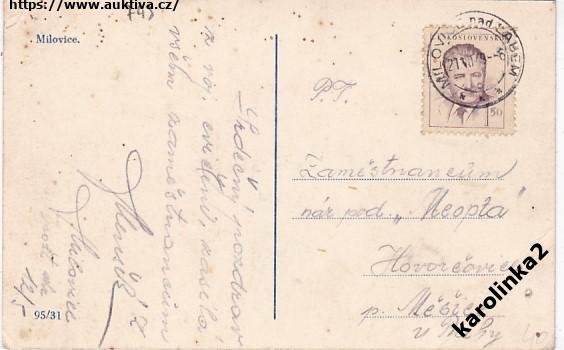 https://www.auktiva.cz/
Milovice.
Srdečný pozdrav
z voj. cvičení, zasílá
všem zaměstnancům
Mlovice
12/5
95/31
MILOVICE nad LABEM
ČESKOSLOVENSKO
1 50
P.T.
Zaměstnancům
nár. pod. „Meopta"
Hovorčovice
p. Měšice
u Prahy
karolinka2